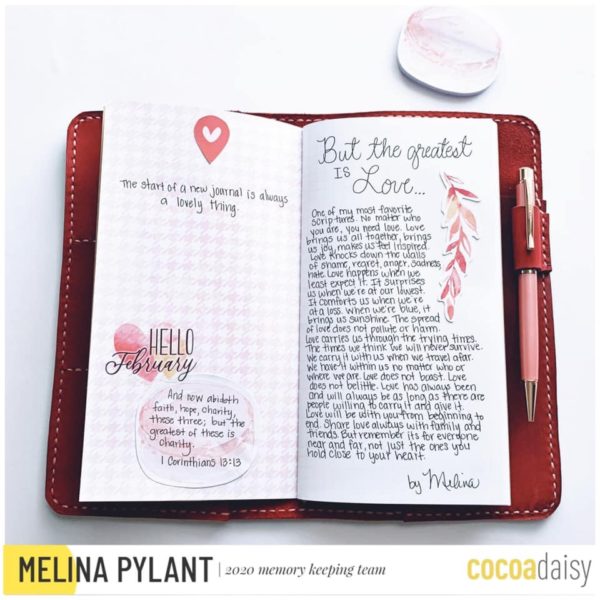 The start of a new journal is always
a lovely thing.
HELLO
February
And now abideth
faith, hope, charity,
these three; but the
greatest of these is
charity.
1 Corinthians 13:13
But the greatest
IS
Love...
One of my most favorite
scriptures. No matter who
you are, you need love. Love
brings us all together, brings
us joy, makes us feel inspired.
Love knocks down the walls
of shame, regret, anger, sadness,
hate. Love happens when we
least expect it. It surprises
us when we're at our lowest.
It comforts us when we're
at a loss. When we're blue, it
brings us sunshine. The spread
of love does not pollute or harm.
Love carries us through the trying times.
The times we think we will never survive.
We carry it with us when we travel afar.
We have it within us no matter who or
where we are. Love does not boast. Love
does not belittle. Love has always been
and will always be as long as there are
people willing to carry it and give it.
Love will be with you from beginning to
end. Share love always with family and
friends. But remember it's for everyone
near and far, not just the ones you
hold close to your heart.
by Melina
MELINA PYLANT | 2020 memory keeping team
cocoadaisy